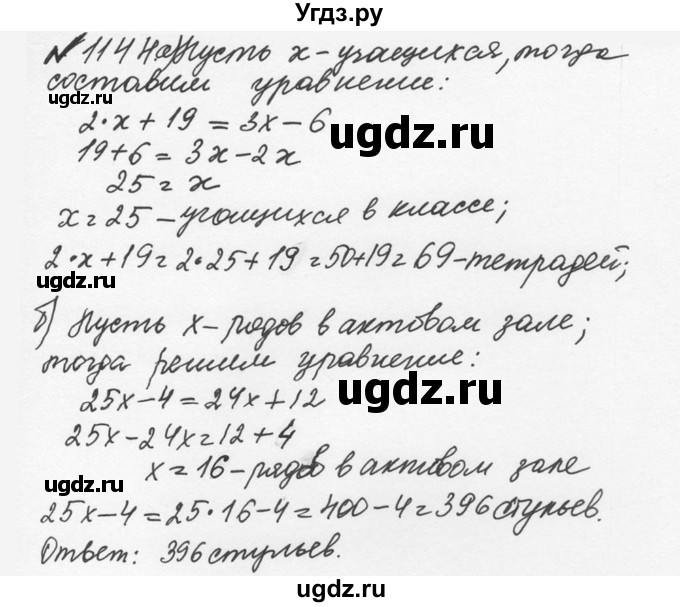 Угдз.ру
№ 1144 а) Пусть х – учащихся, тогда
составим уравнение:
ugdz.ru
2·х + 19 = 3х – 6
ugdz.ru
19 + 6 = 3х – 2х
25 = х
х = 25 – учащихся в классе;
2·х + 19 = 2·25 + 19 = 50 + 19 = 69 – тетрадей;
ugdz.ru
б) Пусть х – рядов в актовом зале;
тогда решим уравнение:
25х – 4 = 24х + 12
ugdz.ru
25х – 24х = 12 + 4
х = 16 – рядов в актовом зале
ugdz.ru
25х – 4 = 25·16 – 4 = 400 – 4 = 396 стульев.
Ответ: 396 стульев.
ugdz.ru